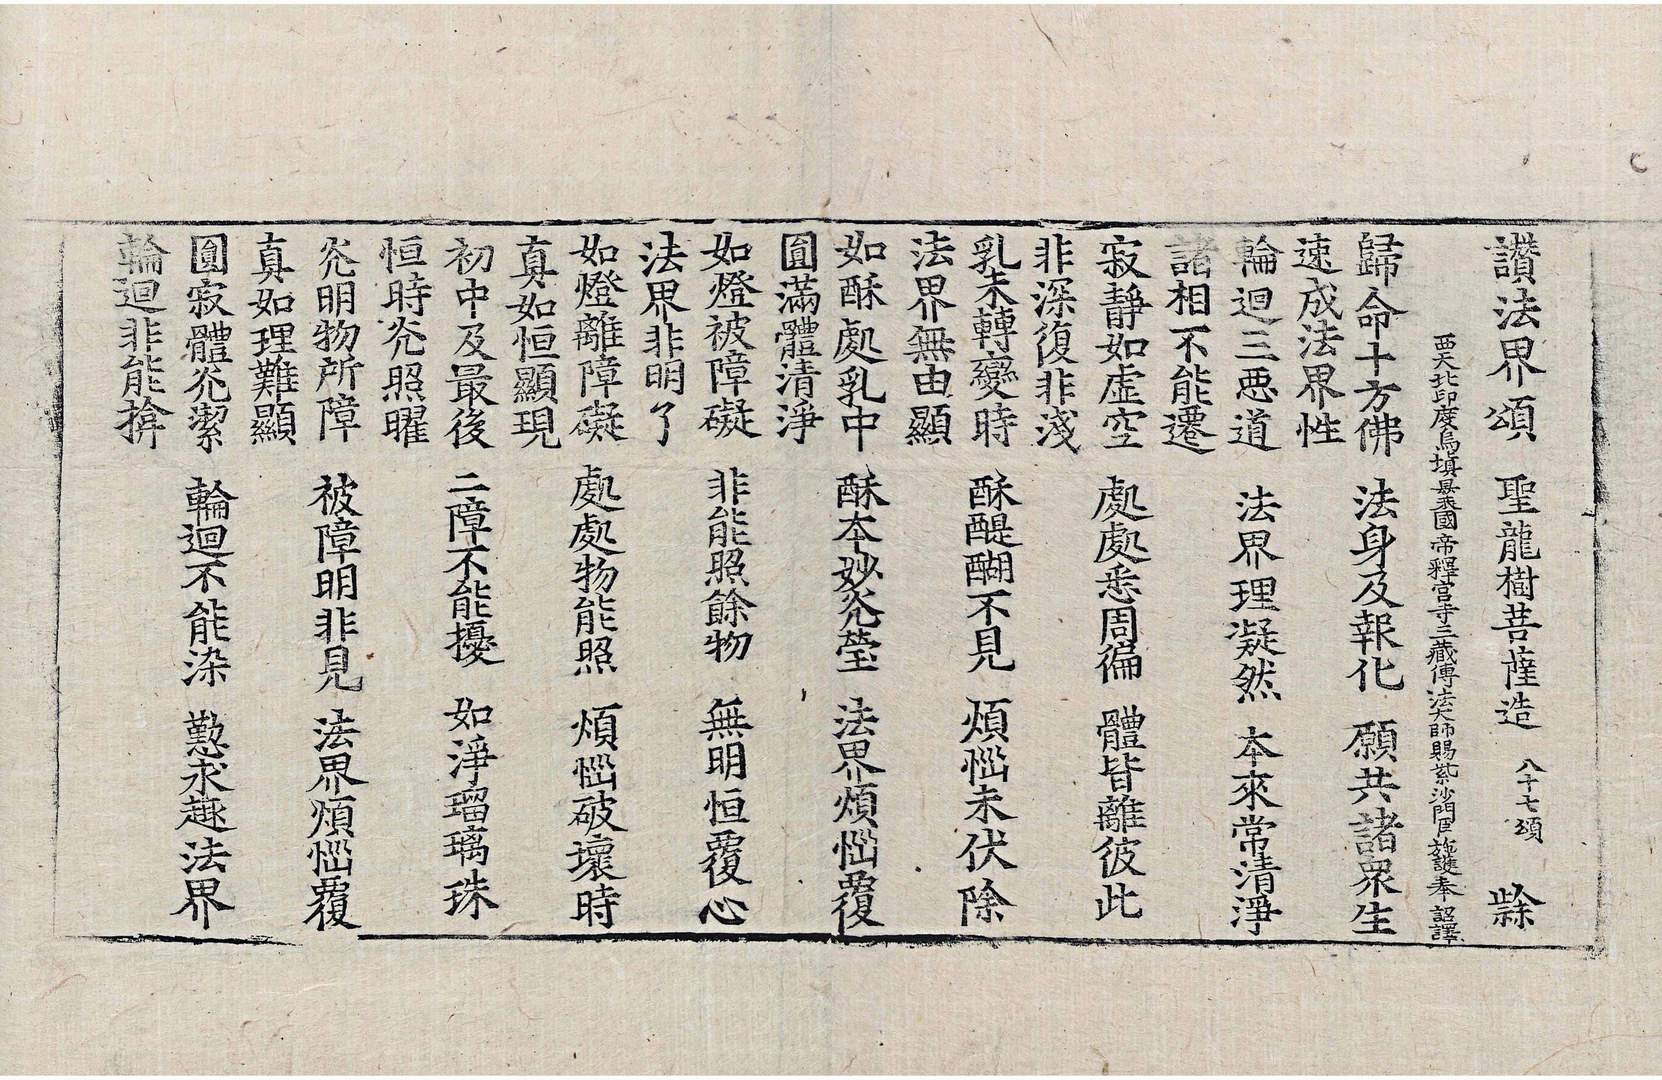 讚法界頌 聖龍樹菩薩造 八十七頌
西天北印度烏塡曩國帝釋宮寺三藏傳法大師賜紫沙門臣施護奉 詔譯
歸命十方佛 法身及報化 願共諸衆生
速成法界性
輪迴三惡道 法界理凝然 本來常清淨
諸相不能遷
寂靜如虛空 處處悉周徧 體皆離彼此
非深復非淺
乳未轉變時 酥醍醐不見 煩惱未伏除
法界無由顯
如酥處乳中 酥本妙光瑩 法界煩惱覆
圓滿體清淨
如燈被障礙 非能照餘物 無明恒覆心
法界非明了
如燈離障礙 處處物能照 煩惱破壞時
真如恒顯現
初中及最後 二障不能擾 如淨瑠璃珠
恒時光照曜
光明物所障 被障明非見 法界煩惱覆
真如理難顯
圓寂體光潔 輪迴不能染 懃求趣法界
輪迴非能揜